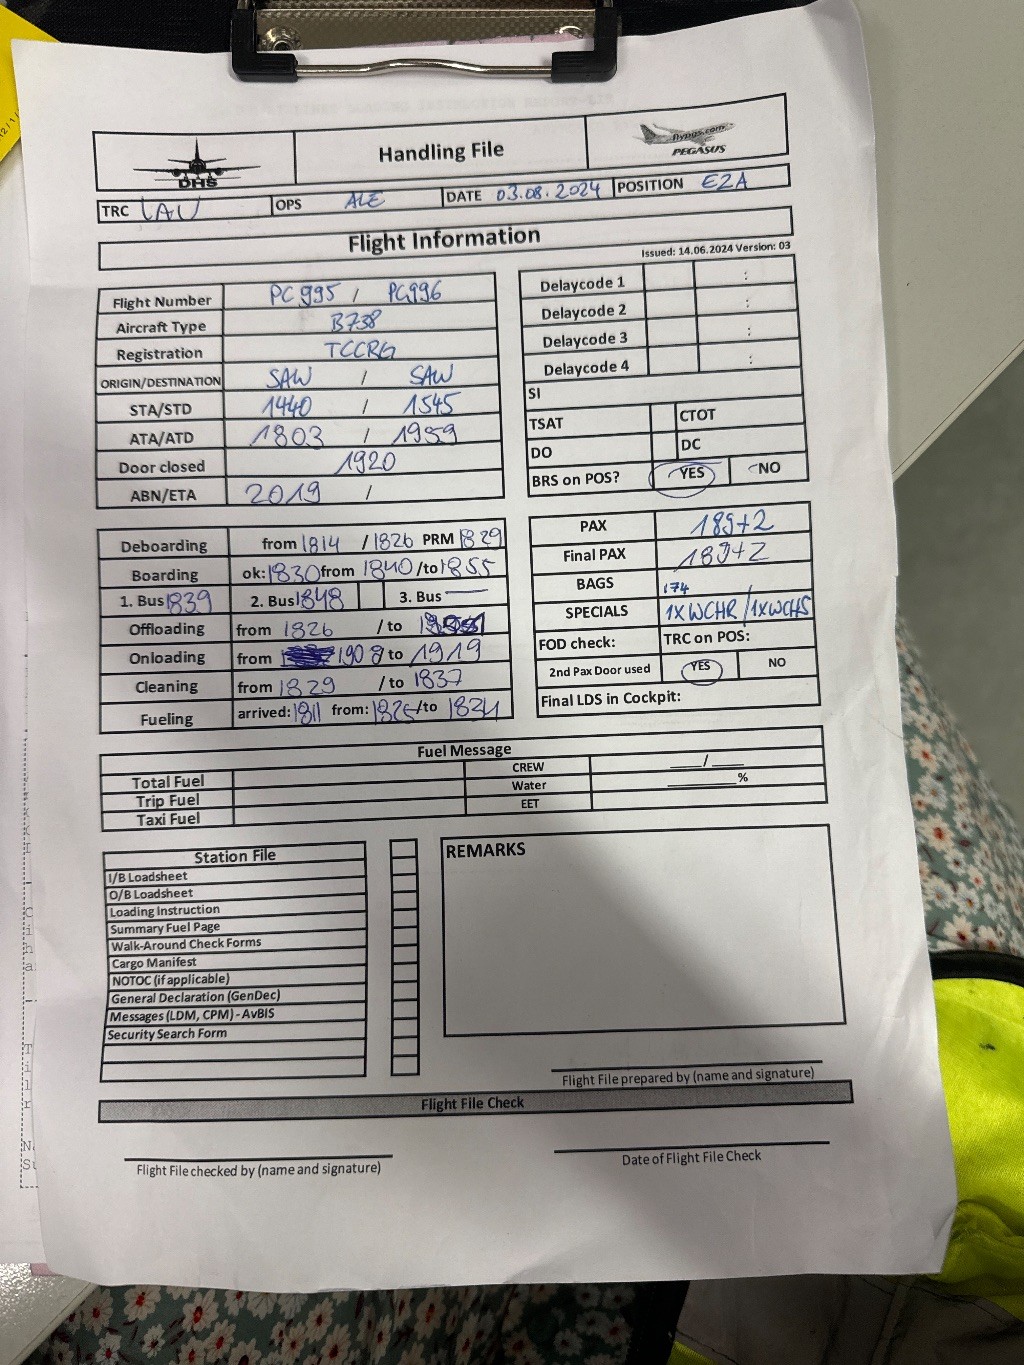 DHS
Handling File
flypgs.com
PEGASUS
TRC LAU OPS ALE DATE 03.08.2024 POSITION E2A
Flight Information
Issued: 14.06.2024 Version: 03
Flight Number PC995 / PC996
Aircraft Type B738
Registration TCCRG
ORIGIN/DESTINATION SAW / SAW
STA/STD 1440 / 1545
ATA/ATD 1803 / 1959
Door closed 1920
ABN/ETA 2019 /
Delaycode 1 :
Delaycode 2 :
Delaycode 3 :
Delaycode 4 :
SI
TSAT CTOT
DO DC
BRS on POS? YES NO
Deboarding from 1814 / 1826 PRM 1829
Boarding ok: 1830 from 1840 /to 1855
1. Bus 1839 2. Bus 1848 3. Bus —
Offloading from 1826 / to
Onloading from 1908 to 1919
Cleaning from 1829 / to 1837
Fueling arrived: 1811 from: 1825 /to 1834
PAX 189+2
Final PAX 189+2
BAGS 174
SPECIALS 1XWCHR /1XWCHS
FOD check: TRC on POS:
2nd Pax Door used YES NO
Final LDS in Cockpit:
Fuel Message
Total Fuel CREW ___/___
Trip Fuel Water ______%
Taxi Fuel EET
Station File
I/B Loadsheet
O/B Loadsheet
Loading Instruction
Summary Fuel Page
Walk-Around Check Forms
Cargo Manifest
NOTOC (if applicable)
General Declaration (GenDec)
Messages (LDM, CPM) - AvBIS
Security Search Form
REMARKS
Flight File prepared by (name and signature)
Flight File Check
Flight File checked by (name and signature)
Date of Flight File Check